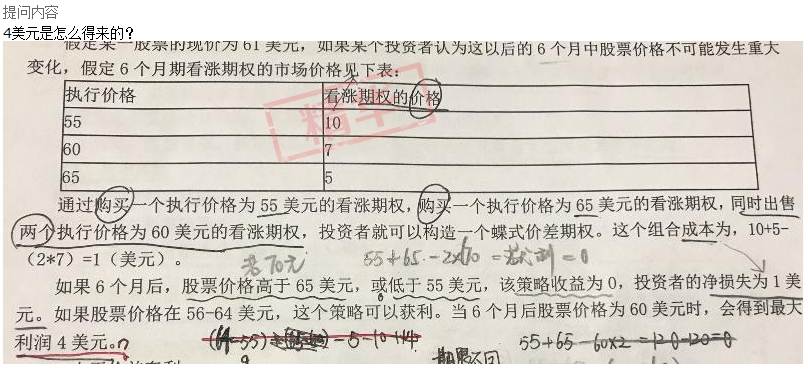 提问内容
4美元是怎么得来的？
假定某一股票的现价为 61 美元，如果某个投资者认为这以后的 6 个月中股票价格不可能发生重大
变化，假定 6 个月期看涨期权的市场价格见下表：
执行价格 看涨期权的价格
55 10
60 7
65 5
通过购买一个执行价格为 55 美元的看涨期权，购买一个执行价格为 65 美元的看涨期权，同时出售
两个执行价格为 60 美元的看涨期权，投资者就可以构造一个蝶式价差期权。这个组合成本为，10+5-
（2*7）=1（美元）。
若70元 55+65-2×60
如果 6 个月后，股票价格高于 65 美元，或低于 55 美元，该策略收益为 0，投资者的净损失为 1 美
元。如果股票价格在 56-64 美元，这个策略可以获利。当 6 个月后股票价格为 60 美元时，会得到最大
利润 4 美元。
55+65-60×2=120-120=0